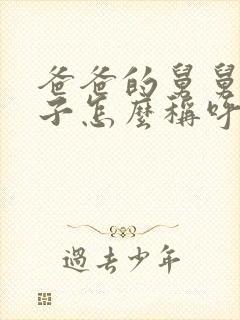 爸爸的舅舅
子怎麼稱呼
過去少年